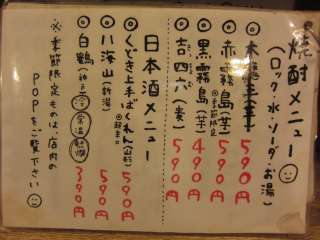 焼酎メニュー
(ロック、水、ソーダ、お湯)
赤霧島(芋) 590円
◎季節限定
黒霧島(芋) 490円
吉四六(麦) 590円
日本酒メニュー
くどき上手ばくれん(山形) 590円
◎超辛口
八海山(新潟) 590円
白鶴(神戸) 冷 常温 熱燗 390円
※季節限定ものは、店内の
POPをご覧下さい